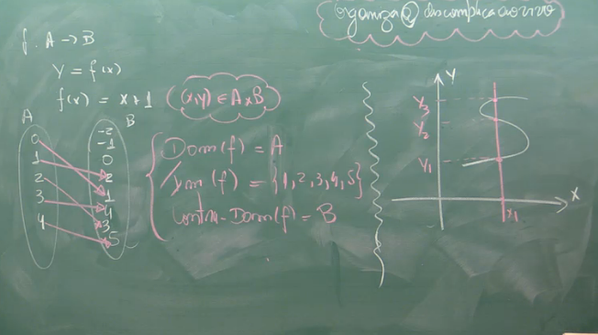 Organiza@descomplica ao vivo
f: A → B
Y = f(x)
f(x) = x+1
(x,y) ∈ A×B
A
0
1
2
3
4
B
-2
-1
0
2
1
4
3
5
Dom(f) = A
Im(f) = {1,2,3,4,5}
Contra-Dom(f) = B
Y
Y3
Y2
Y1
X
x1